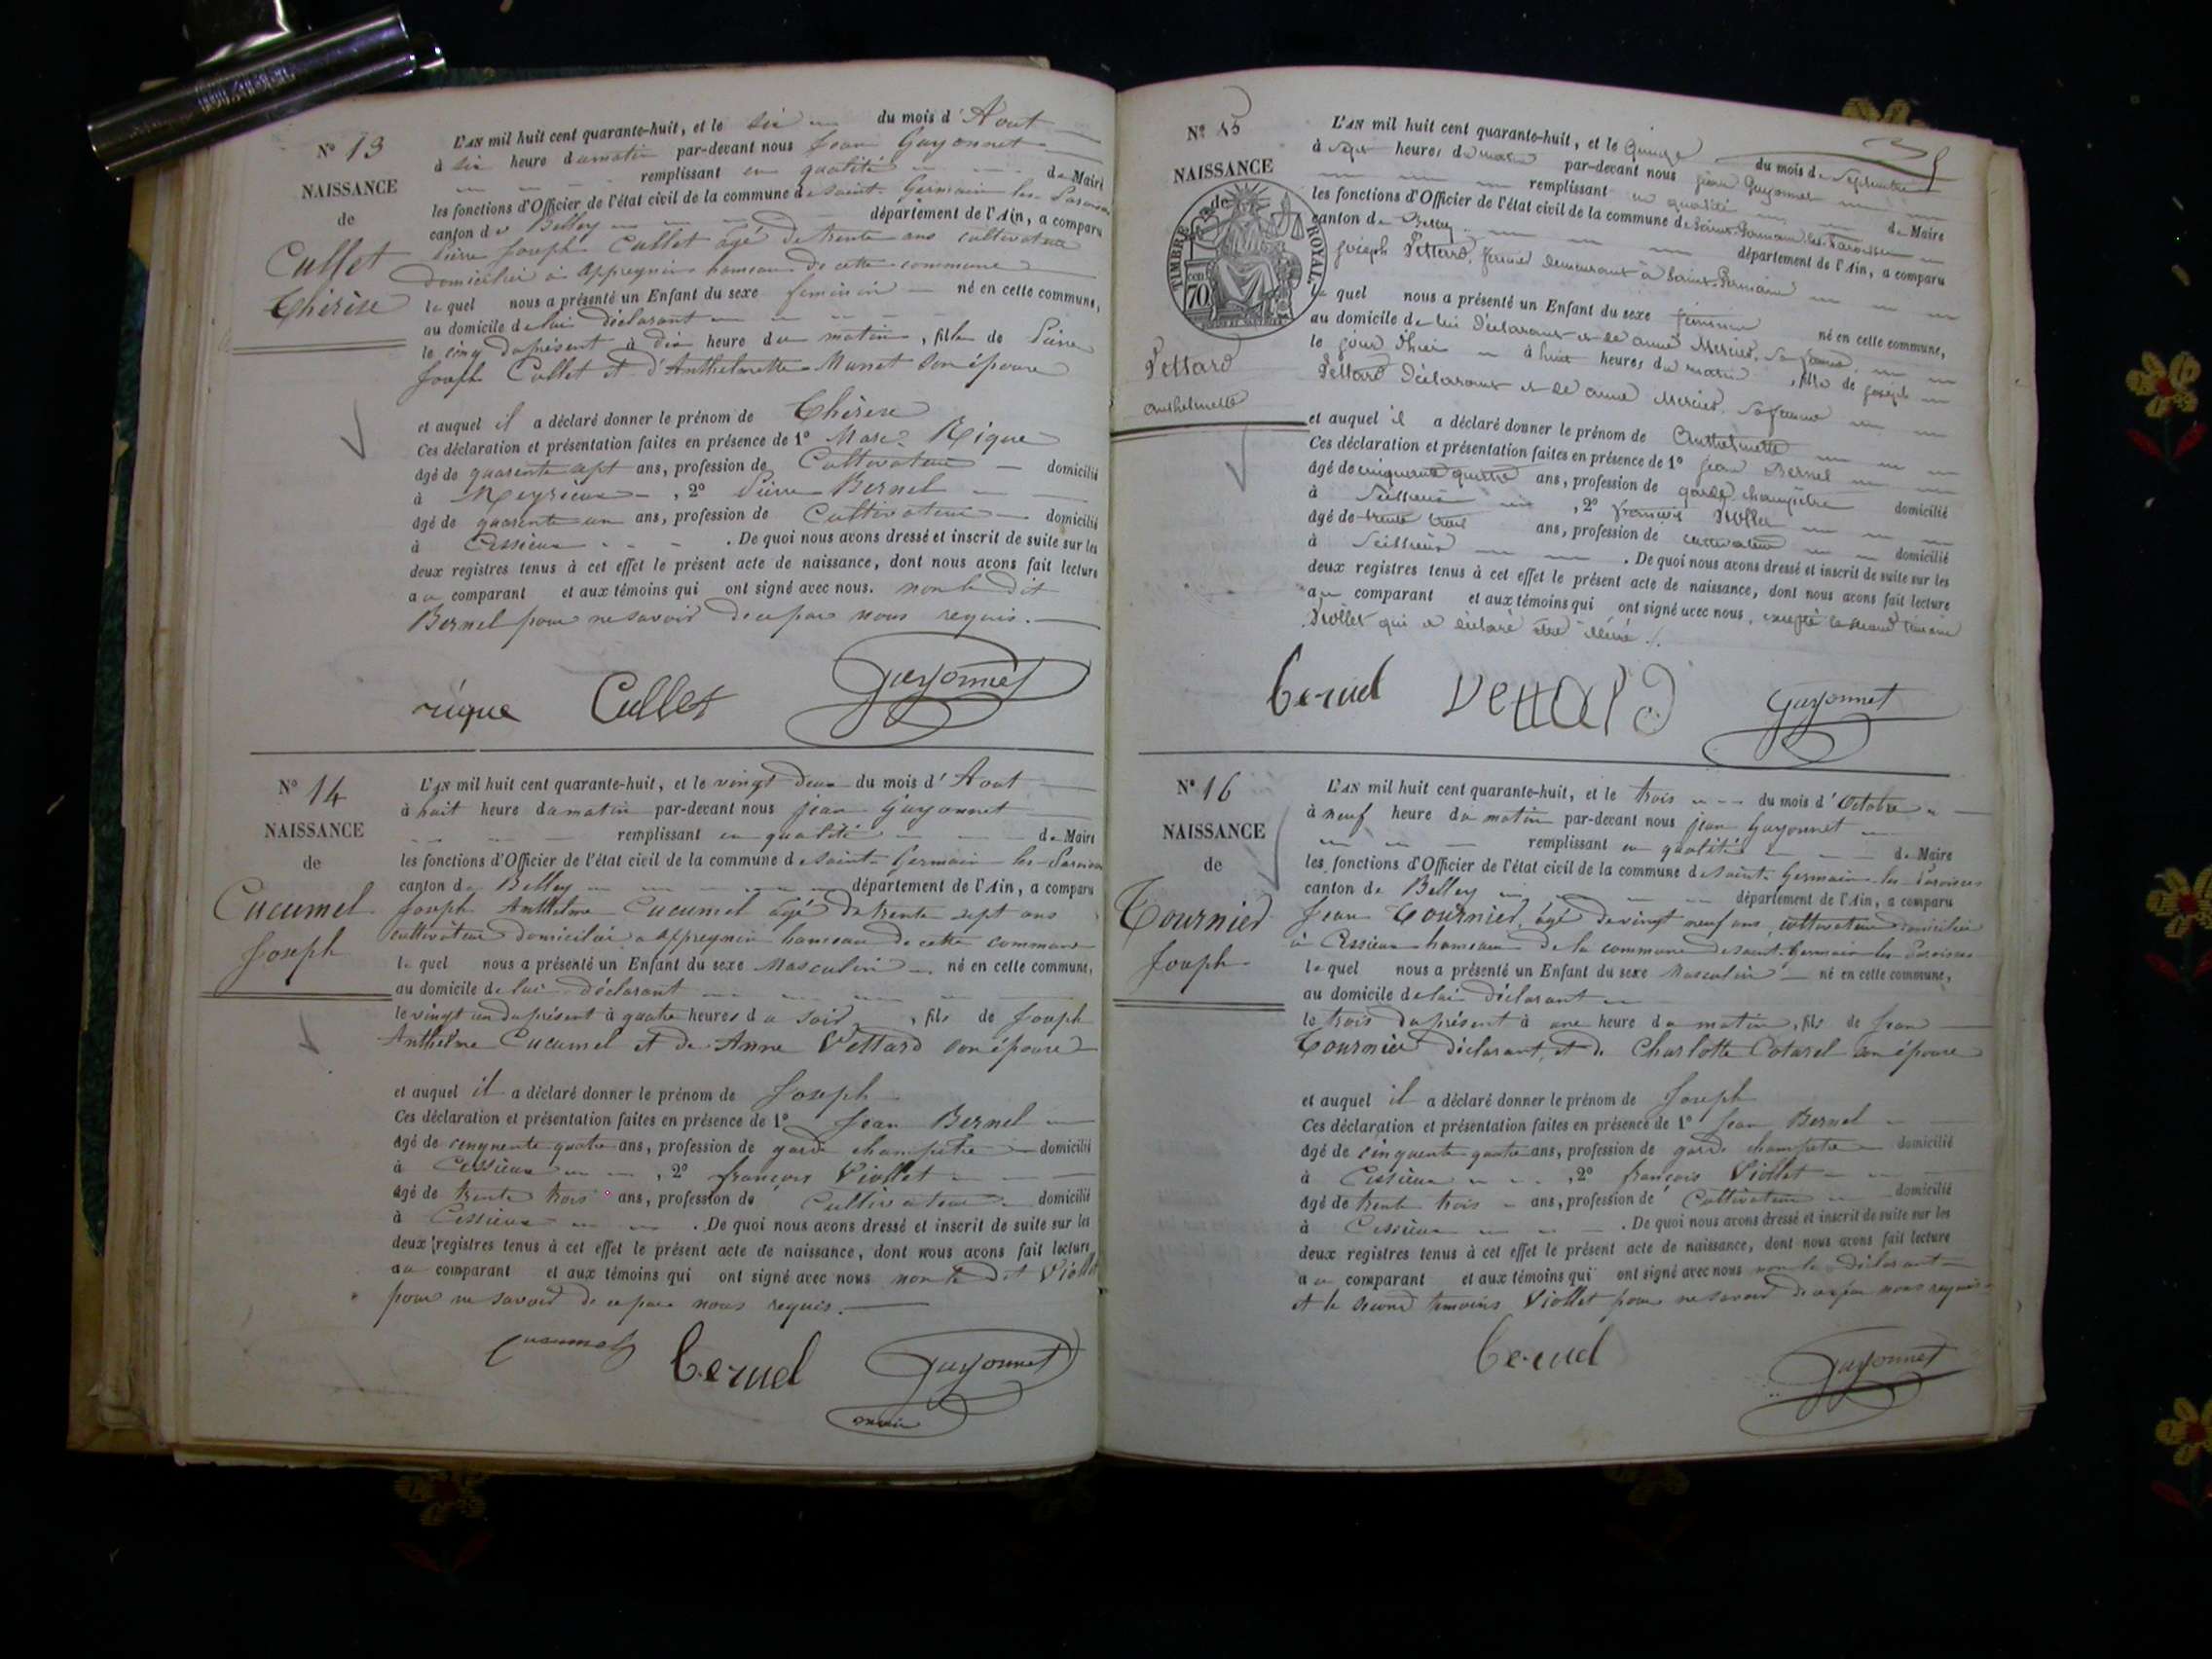 N° 13
NAISSANCE
de
Cullet
Thérèse
L'AN mil huit cent quarante-huit, et le six du mois d'Aout
à six heure du matin par-devant nous Jean Guyonnet
remplissant en qualité de Maire
les fonctions d'Officier de l'état civil de la commune de Saint-Germain les Paroisses
canton de Belley département de l'Ain, a comparu
Pierre Joseph Cullet âgé de trente ans cultivateur
domicilié à Appregnin hameau de cette commune
le quel nous a présenté un Enfant du sexe feminin né en cette commune,
au domicile de lui déclarant
le cinq du présent à dix heure du matin, fille de Pierre
Joseph Cullet et d'Anthelmette Munet son épouse
et auquel il a déclaré donner le prénom de Thérèse
Ces déclaration et présentation faites en présence de 1° Marc Rique
âgé de quarente sept ans, profession de Cultivateur domicilié
à Meyrieux, 2° Pierre Bernel
âgé de quarente un ans, profession de Cultivateur domicilié
à Cessieux. De quoi nous avons dressé et inscrit de suite sur les
deux registres tenus à cet effet le présent acte de naissance, dont nous avons fait lecture
au comparant et aux témoins qui ont signé avec nous. non le dit
Bernel pour ne savoir de ce par nous requis.
rique Cullet Guyonnet
N° 14
NAISSANCE
de
Cucumel
Joseph
L'AN mil huit cent quarante-huit, et le vingt deux du mois d'Aout
à huit heure du matin par-devant nous jean Guyonnet
remplissant en qualité de Maire
les fonctions d'Officier de l'état civil de la commune de Saint-Germain les Paroisses
canton de Belley département de l'Ain, a comparu
Joseph Anthelme Cucumel âgé de trente sept ans
cultivateur domicilié a Appregnin hameau de cette commune
le quel nous a présenté un Enfant du sexe Masculin né en cette commune,
au domicile de lui déclarant
le vingt un du présent à quatre heures du soir, fils de Joseph
Anthelme Cucumel et de Anne Vettard son épouse
et auquel il a déclaré donner le prénom de Joseph
Ces déclaration et présentation faites en présence de 1° Jean Bernel
âgé de cinquente quatre ans, profession de garde champetre domicilié
à Cessieux, 2° françois Viollet
âgé de trente trois ans, profession de Cultivateur domicilié
à Cessieux. De quoi nous avons dressé et inscrit de suite sur les
deux registres tenus à cet effet le présent acte de naissance, dont nous avons fait lecture
au comparant et aux témoins qui ont signé avec nous non le dit Viollet
pour ne savoir de ce par nous requis.
Cucumel Bernel Guyonnet
maire
N° 15
NAISSANCE
TIMBRE ROYAL
70
Vettard
anthelmette
L'AN mil huit cent quarante-huit, et le Quinze du mois de Septembre
à sept heures du matin par-devant nous jean Guyonnet
remplissant en qualité de Maire
les fonctions d'Officier de l'état civil de la commune de Saint-Germain les Paroisses
canton de Belley département de l'Ain, a comparu
joseph Vettard, fermier demeurant à Saint-Germain
le quel nous a présenté un Enfant du sexe féminin né en cette commune,
au domicile de lui déclarant et de anne Mercier, sa femme
le jour d'hier à huit heures du matin, fille de joseph
Vettard déclarant et de anne Mercier, sa femme
et auquel il a déclaré donner le prénom de Anthelmette
Ces déclaration et présentation faites en présence de 1° jean Bernel
âgé de cinquante quatre ans, profession de garde champêtre domicilié
à, 2° françois Viollet
âgé de trente trois ans, profession de cultivateur domicilié
à. De quoi nous avons dressé et inscrit de suite sur les
deux registres tenus à cet effet le présent acte de naissance, dont nous avons fait lecture
au comparant et aux témoins qui ont signé avec nous, excepté le second témoin
Viollet qui a déclaré être illéré
Bernel Vettard Guyonnet
N° 16
NAISSANCE
de
Tournier
Joseph
L'AN mil huit cent quarante-huit, et le trois du mois d'Octobre
à neuf heure du matin par-devant nous jean Guyonnet
remplissant en qualité de Maire
les fonctions d'Officier de l'état civil de la commune de Saint-Germain les Paroisses
canton de Belley département de l'Ain, a comparu
Jean Tournier, âgé de vingt neuf ans, cultivateur domicilié
à Cessieux hameau de la commune de Saint-Germain les Paroisses
le quel nous a présenté un Enfant du sexe Masculin né en cette commune,
au domicile de lui déclarant
le trois du présent à une heure du matin, fils de Jean
Tournier déclarant, et de Charlotte Cotarel son épouse
et auquel il a déclaré donner le prénom de Joseph
Ces déclaration et présentation faites en présence de 1° Jean Bernel
âgé de cinquente quatre ans, profession de garde champetre domicilié
à Cessieux, 2° françois Viollet
âgé de trente trois ans, profession de Cultivateur domicilié
à Cessieux. De quoi nous avons dressé et inscrit de suite sur les
deux registres tenus à cet effet le présent acte de naissance, dont nous avons fait lecture
au comparant et aux témoins qui ont signé avec nous non le déclarant
et le second temoins Viollet pour ne savoir de ce par nous requis
Bernel Guyonnet